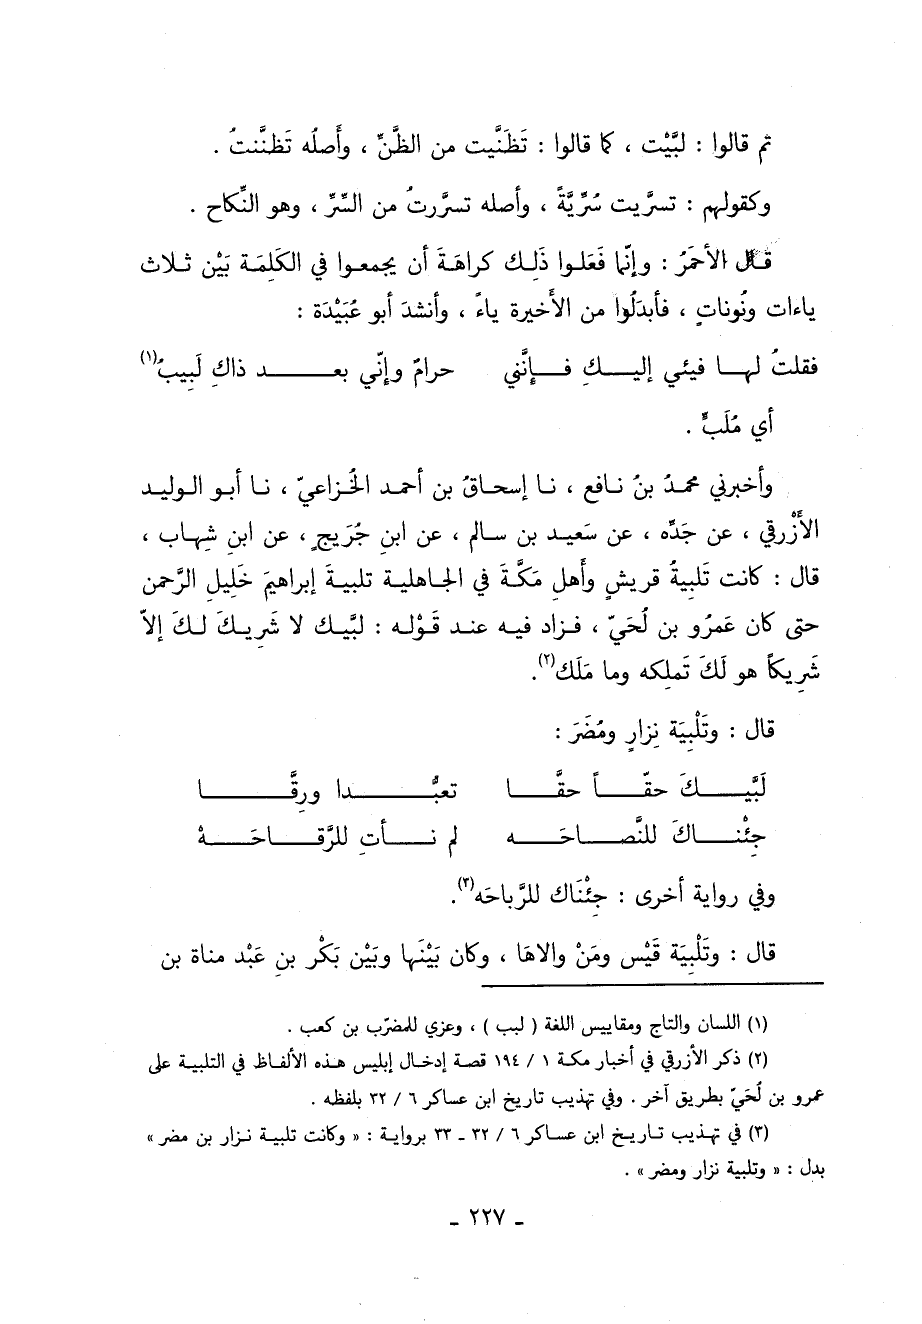 ثم قالوا : لبَّيْت ، كما قالوا : تَظَنَّيت من الظَّنِّ ، وأَصلُه تَظنَّنتُ .
وكقولهم : تسرَّيت سُرِّيَّةً ، وأصله تسرَّرتُ من السِّرِّ ، وهو النِّكاح .
قـال الأحمَرُ : وإنّما فَعَلـوا ذَلِـك كراهَةَ أن يجمعـوا في الكَلِمَـة بَيْن ثـلاث
ياءات ونُوناتٍ ، فأبدَلُوا من الأَخيرة ياءً ، وأَنشدَ أبو عُبَيْدَة :
فقلتُ لهـا فيئي إليـكِ فـإنَّني حرامٌ وإنّي بعـد ذاكِ لَبِيبُ(١)
أي مُلَبٍّ .
وأخبرني محمدُ بنُ نـافع ، نـا إسحـاقُ بن أحمد الخُزاعيّ ، نـا أبـو الوليـد
الأَزْرقي ، عن جَدِّه ، عن سَعِيـد بن سـالم ، عن ابنِ جُرَيجٍ ، عن ابنِ شِهـاب ،
قال : كانت تَلْبِيةُ قريشٍ وأَهلِ مَكَّةَ في الجـاهليـة تلبيـةَ إبراهيمَ خَلِيلِ الرَّحمن
حتى كان عَمرُو بن لُحَيّ ، فـزاد فيـه عنـد قَوْلـه : لبَّيـك لا شَرِيـكَ لـكَ إلاّ
شَرِيكاً هو لَكَ تَملِكه وما مَلَك(٢).
قال : وتَلْبِيَة نِزارٍ ومُضَرَ :
لَبَّيـكَ حقّـاً حقَّـا تعبُّـدا ورِقَّـا
جِئْنـاكَ للنَّصـاحَـه لم نـأتِ للرَّقـاحَـهْ
وفي رواية أخرى : جِئْنَاك للرَّباحَه(٣).
قال : وتَلْبِيَة قَيْس ومَنْ والاهَا ، وكان بَيْنَها وبَيْن بَكْر بنِ عَبْد مناة بن
(١) اللسان والتاج ومقاييس اللغة ( لبب ) ، وعزي للمضرّب بن كعب .
(٢) ذكر الأزرقي في أخبار مكة ١ / ١٩٤ قصة إدخال إبليس هـذه الألفـاظ في التلبيـة على
عمرو بن لُحَيّ بطريق آخر . وفي تهذيب تاريخ ابن عساكر ٦ / ٣٢ بلفظه .
(٣) في تهـذيب تـاريـخ ابن عسـاكر ٦ / ٣٢ ـ ٣٣ بروايـة : « وكانت تلبيـة نـزار بن مضر »
بدل : « وتلبية نزار ومضر » .
ـ ٢٢٧ ـ